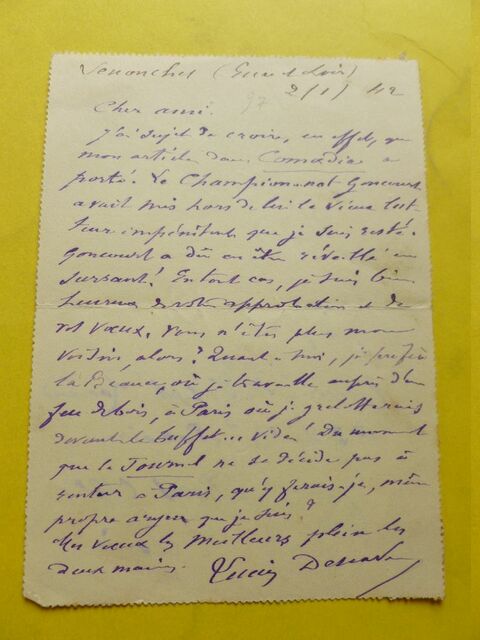 Senonches (Eure et Loir)
2/1/42
Cher ami.
J'ai sujet de croire, en effet, que
mon article dans Comœdia a
porté. Le Championnat Goncourt
avait mis hors de lui le vieux lut
teur impénitent que je suis resté.
Goncourt a dû en être réveillé en
sursaut! En tout cas, je suis bien
heureux de votre approbation et de
vos vœux. Vous n'êtes plus mon
voisin, alors? Quant à moi, je préfère
la Beauce, où je travaille auprès d'un
feu de bois, à Paris où je grelotterais
devant le buffet... vide! Du moment
que le Journal ne se décide pas à
rentrer à Paris, qu'y ferais-je,
propre à rien que je suis?
Mes vœux les meilleurs plein les
deux mains. Lucien Descaves